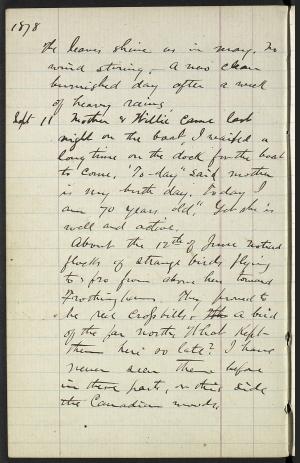 1878
the leaves shine as in may. No
wind stiring, - A
burnished day after a week
of heavy rains,
Sept 11 Mother & Willie came last
night on the boat, I waited a
long time on the dock for the boat
to come. "To-day" said mother
is my birth day. Today I
am 70 years old," Yet she is
well and active.
About the 12th of June noticed
flocks of strange birds flying
to & fro from above here toward
Frothinghams. They proved to
be red crossbills, a bird
of the far north, What kept
them here so late? I have
never seen them before
in these parts, or this side
the Canadian woods,